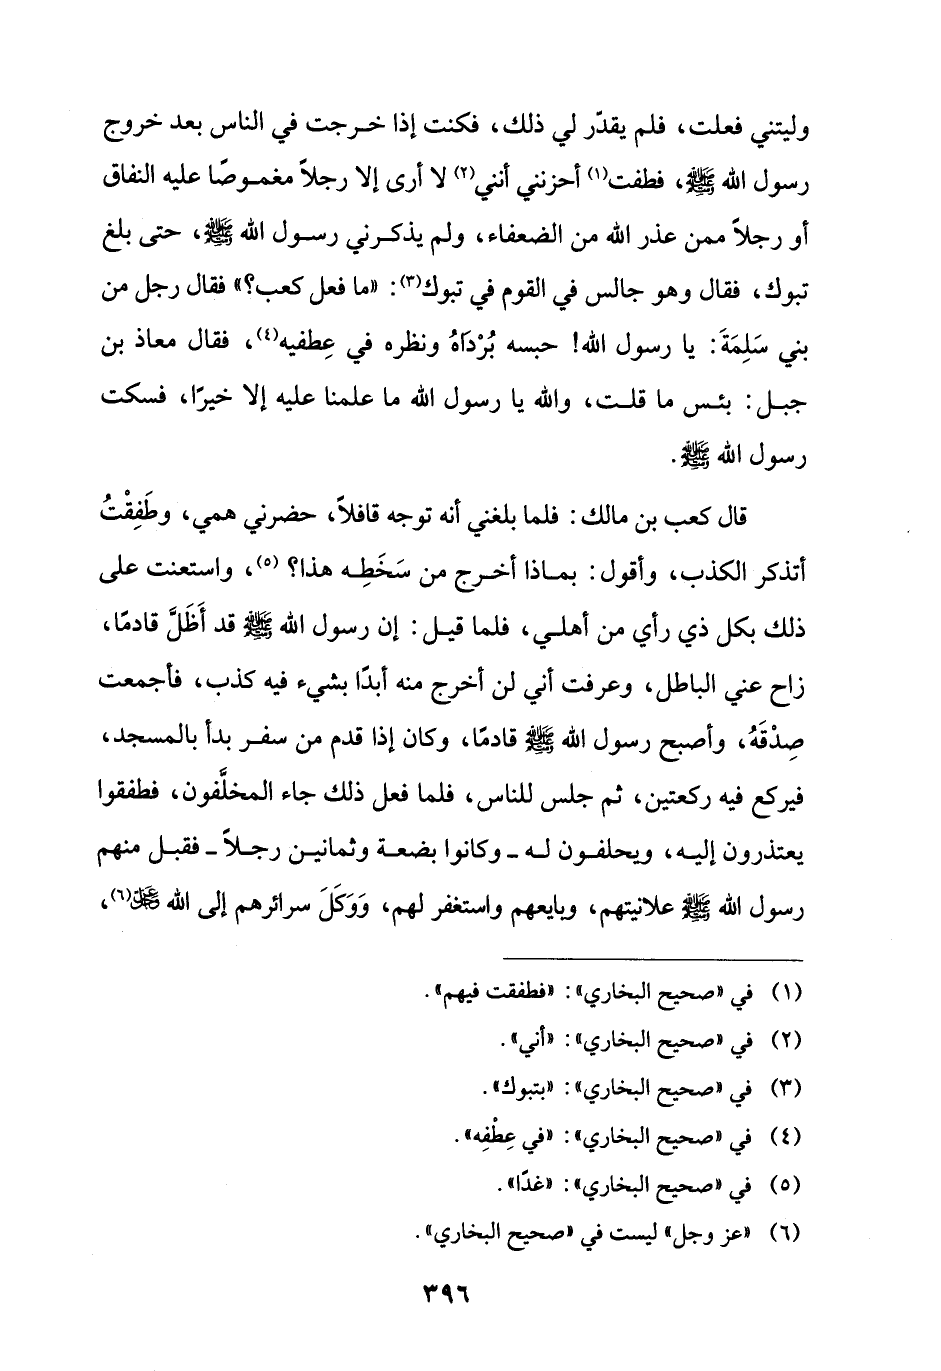 وليتني فعلت، فلم يقدّر لي ذلك، فكنت إذا خرجت في الناس بعد خروج
رسول الله ﷺ، فطفت(١) أحزنني أنني(٢) لا أرى إلا رجلاً مغموصًا عليه النفاق
أو رجلاً ممن عذر الله من الضعفاء، ولم يذكرني رسول الله ﷺ، حتى بلغ
تبوك، فقال وهو جالس في القوم في تبوك(٣): «ما فعل كعب؟» فقال رجل من
بني سَلِمَةَ: يا رسول الله! حبسه بُرْدَاهُ ونظره في عِطفيه(٤)، فقال معاذ بن
جبل: بئس ما قلت، والله يا رسول الله ما علمنا عليه إلا خيرًا، فسكت
رسول الله ﷺ.
قال كعب بن مالك: فلما بلغني أنه توجه قافلاً، حضرني همي، وطَفِقْتُ
أتذكر الكذب، وأقول: بماذا أخرج من سَخَطِه هذا؟ (٥)، واستعنت على
ذلك بكل ذي رأي من أهلي، فلما قيل: إن رسول الله ﷺ قد أَظَلَّ قادمًا،
زاح عني الباطل، وعرفت أني لن أخرج منه أبدًا بشيء فيه كذب، فأجمعت
صِدْقَهُ، وأصبح رسول الله ﷺ قادمًا، وكان إذا قدم من سفر بدأ بالمسجد،
فيركع فيه ركعتين، ثم جلس للناس، فلما فعل ذلك جاء المخلَّفون، فطفقوا
يعتذرون إليه، ويحلفون له ـ وكانوا بضعة وثمانين رجلاً ـ فقبل منهم
رسول الله ﷺ علانيتهم، وبايعهم واستغفر لهم، وَوَكَلَ سرائرهم إلى الله عز وجل(٦)،
(١) في «صحيح البخاري»: «فطفقت فيهم».
(٢) في «صحيح البخاري»: «أني».
(٣) في «صحيح البخاري»: «بتبوك».
(٤) في «صحيح البخاري»: «في عِطْفِه».
(٥) في «صحيح البخاري»: «غدًا».
(٦) «عز وجل» ليست في «صحيح البخاري».
٣٩٦